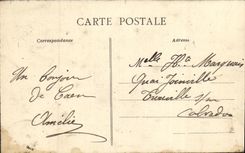 CARTE POSTALE
Correspondance
Adresse
Melle Ha Marquais
Quai Joinville
Trouville sur
Calvados
Un bonjour
de Caen
Amélie